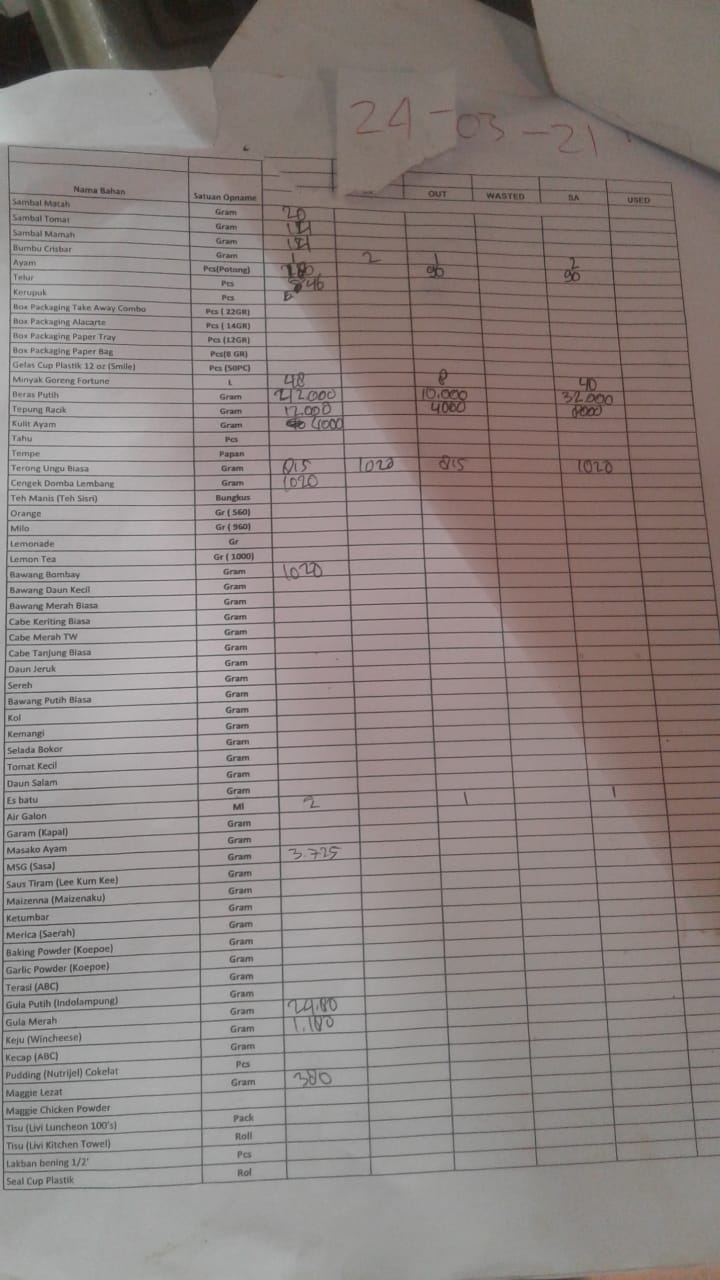 24-03-21
Nama Bahan Satuan Opname OUT WASTED SA USED
Sambal Matah Gram 20
Sambal Tomat Gram
Sambal Mamah Gram
Bumbu Crisbar Gram 1 2 1 2
Ayam Pcs(Potong) 90 90
Telur Pcs
Kerupuk Pcs
Box Packaging Take Away Combo Pcs ( 22GR)
Box Packaging Alacarte Pcs ( 14GR)
Box Packaging Paper Tray Pcs (12GR)
Box Packaging Paper Bag Pcs(8 GR)
Gelas Cup Plastik 12 oz (Smile) Pcs (50PC)
Minyak Goreng Fortune L 48 8 40
Beras Putih Gram 212.000 10.000 32.000
Tepung Racik Gram 12.000 4000 8000
Kulit Ayam Gram 4000
Tahu Pcs
Tempe Papan
Terong Ungu Biasa Gram 815 1020 815 1020
Cengek Domba Lembang Gram 1020
Teh Manis (Teh Sisri) Bungkus
Orange Gr ( 560)
Milo Gr ( 960)
Lemonade Gr
Lemon Tea Gr ( 1000)
Bawang Bombay Gram 1020
Bawang Daun Kecil Gram
Bawang Merah Biasa Gram
Cabe Keriting Biasa Gram
Cabe Merah TW Gram
Cabe Tanjung Biasa Gram
Daun Jeruk Gram
Sereh Gram
Bawang Putih Biasa Gram
Kol Gram
Kemangi Gram
Selada Bokor Gram
Tomat Kecil Gram
Daun Salam Gram
Es batu Gram
Air Galon Ml 2 1 1
Garam (Kapal) Gram
Masako Ayam Gram
MSG (Sasa) Gram 3.725
Saus Tiram (Lee Kum Kee) Gram
Maizenna (Maizenaku) Gram
Ketumbar Gram
Merica (Saerah) Gram
Baking Powder (Koepoe) Gram
Garlic Powder (Koepoe) Gram
Terasi (ABC) Gram
Gula Putih (Indolampung) Gram
Gula Merah Gram
Keju (Wincheese) Gram
Kecap (ABC) Gram
Pudding (Nutrijel) Cokelat Pcs
Maggie Lezat Gram 380
Maggie Chicken Powder
Tisu (Livi Luncheon 100's) Pack
Tisu (Livi Kitchen Towel) Roll
Lakban bening 1/2' Pcs
Seal Cup Plastik Rol